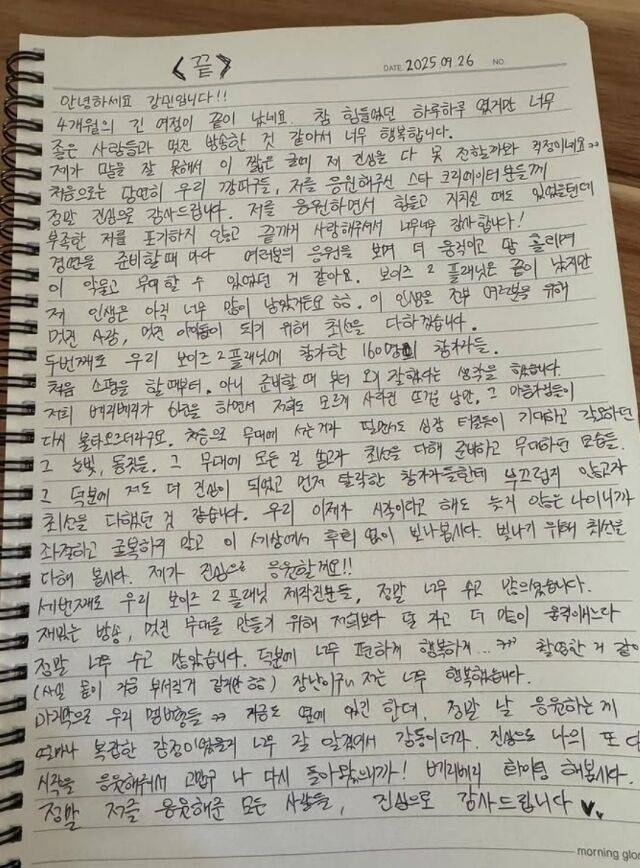 <끝>
DATE 2025 09 26 NO.
안녕하세요 강민입니다!!
4개월의 긴 여정이 끝이 났네요. 참 힘들었던 하루하루 였지만 너무
좋은 사람들과 멋진 방송한 것 같아서 너무 행복합니다.
제가 말을 잘 못해서 이 짧은 글에 제 진심을 다 못 전할까봐 걱정이네요ㅠㅠ
처음으로는 당연히 우리 깡따구들, 저를 응원해주신 스타 크리에이터분들께
정말 진심으로 감사드립니다. 저를 응원하면서 힘들고 지치신 때도 있었을텐데
부족한 저를 포기하지 않고 끝까지 사랑해주셔서 너무너무 감사합니다!
경연을 준비할 때 마다 여러분의 응원을 보며 더 움직이고 땀 흘리며
이 악물고 무대할 수 있었던 거 같아요. 보이즈 2 플래닛은 끝이 났지만
저 인생은 아직 너무 많이 남았거든요 ㅎㅎ. 이 인생을 전부 여러분을 위해
멋진 사람, 멋진 아이돌이 되기 위해 최선을 다하겠습니다.
두번째로 우리 보이즈 2 플래닛에 참가한 160명의 참가자들.
처음 소펑을 할때부터. 아니 준비할 때 부터 오길 잘했다는 생각을 했습니다.
저희 베리베리가 활동을 하면서 저희도 모르게 사라진 뜨거운 낭만, 그 마음가짐들이
다시 불타오르더라구요. 처음으로 무대에 서는거라 떨면서도 심장 터질듯이 기대하고 갈망하던
그 눈빛, 동작들. 그 무대에 모든 걸 쏟고자 최선을 다해 준비하고 무대하던 모습들.
그 덕분에 저도 더 진심이 되었고 먼저 탈락한 참가자들한테 부끄럽지 않고자
최선을 다했던 것 같습니다. 우리 이제가 시작이라고 해도 늦지 않은 나이니까
좌절하고 굴복하지 말고 이 세상에서 후회 없이 보내봅시다. 빛나기 위해 최선을
다해 봅시다. 제가 진심으로 응원할게요!!
세번째로 우리 보이즈 2 플래닛 제작진분들, 정말 너무 수고 많으셨습니다.
재밌는 방송, 멋진 무대를 만들기 위해 저희보다 덜 자고 더 많이 움직이느라
정말 너무 수고 많았습니다. 덕분에 너무 편하게 행복하게... ㅋㅋ 촬영한 거 같아
(사실 몸이 조금 부서진거 같지만 ㅎㅎ) 장난이구 저는 너무 행복했습니다.
마지막으로 우리 멤버형들 ㅠㅠ 지금도 옆에 있긴 한데, 정말 날 응원하는게
얼마나 복잡한 감정이었을지 너무 잘 알겠어서 감동이더라. 진심으로 나의 또 다
시작을 응원해줘서 고맙구 나 다시 돌아왔으니까! 베리베리 화이팅 해봅시다.
정말 저를 응원해준 모든 사람들, 진심으로 감사드립니다 ♥♥
morning glo